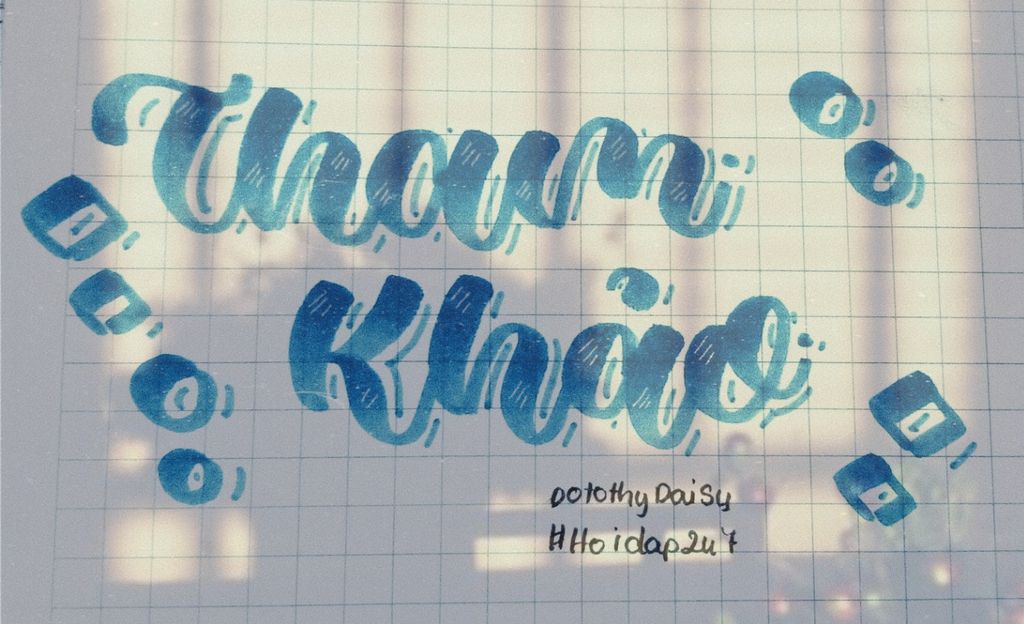 Tham
Khảo
DotothyDaisy
#Hoidap247